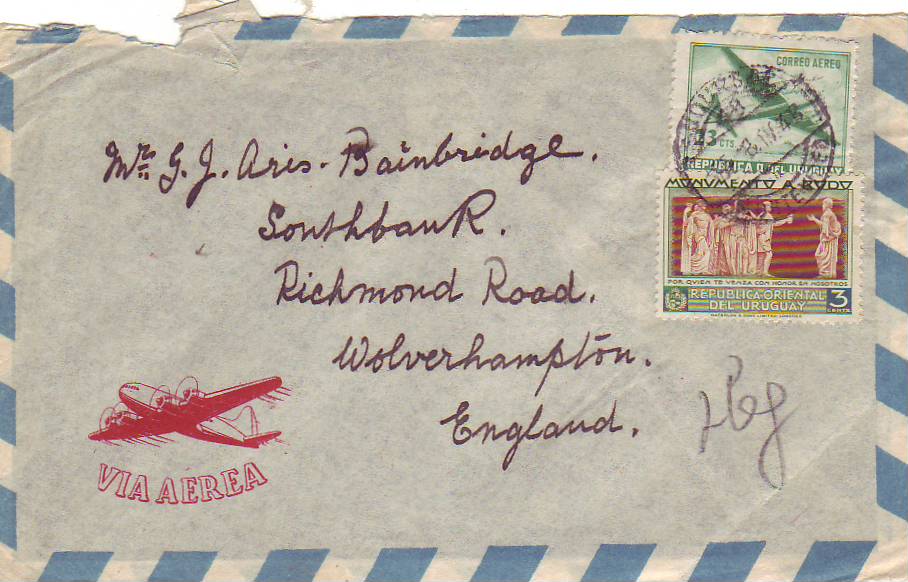 CORREO AEREO
CTS.
REPUBLICA O. DEL URUGUAY
MONUMENTO A RODO
POR QUIEN TE VENZA CON HONOR EN NOSOTROS
REPUBLICA ORIENTAL
DEL URUGUAY
3
CENTS
Mrs. G. J. Aris-Bainbridge.
Southbank.
Richmond Road.
Wolverhampton.
England.
VIA AEREA